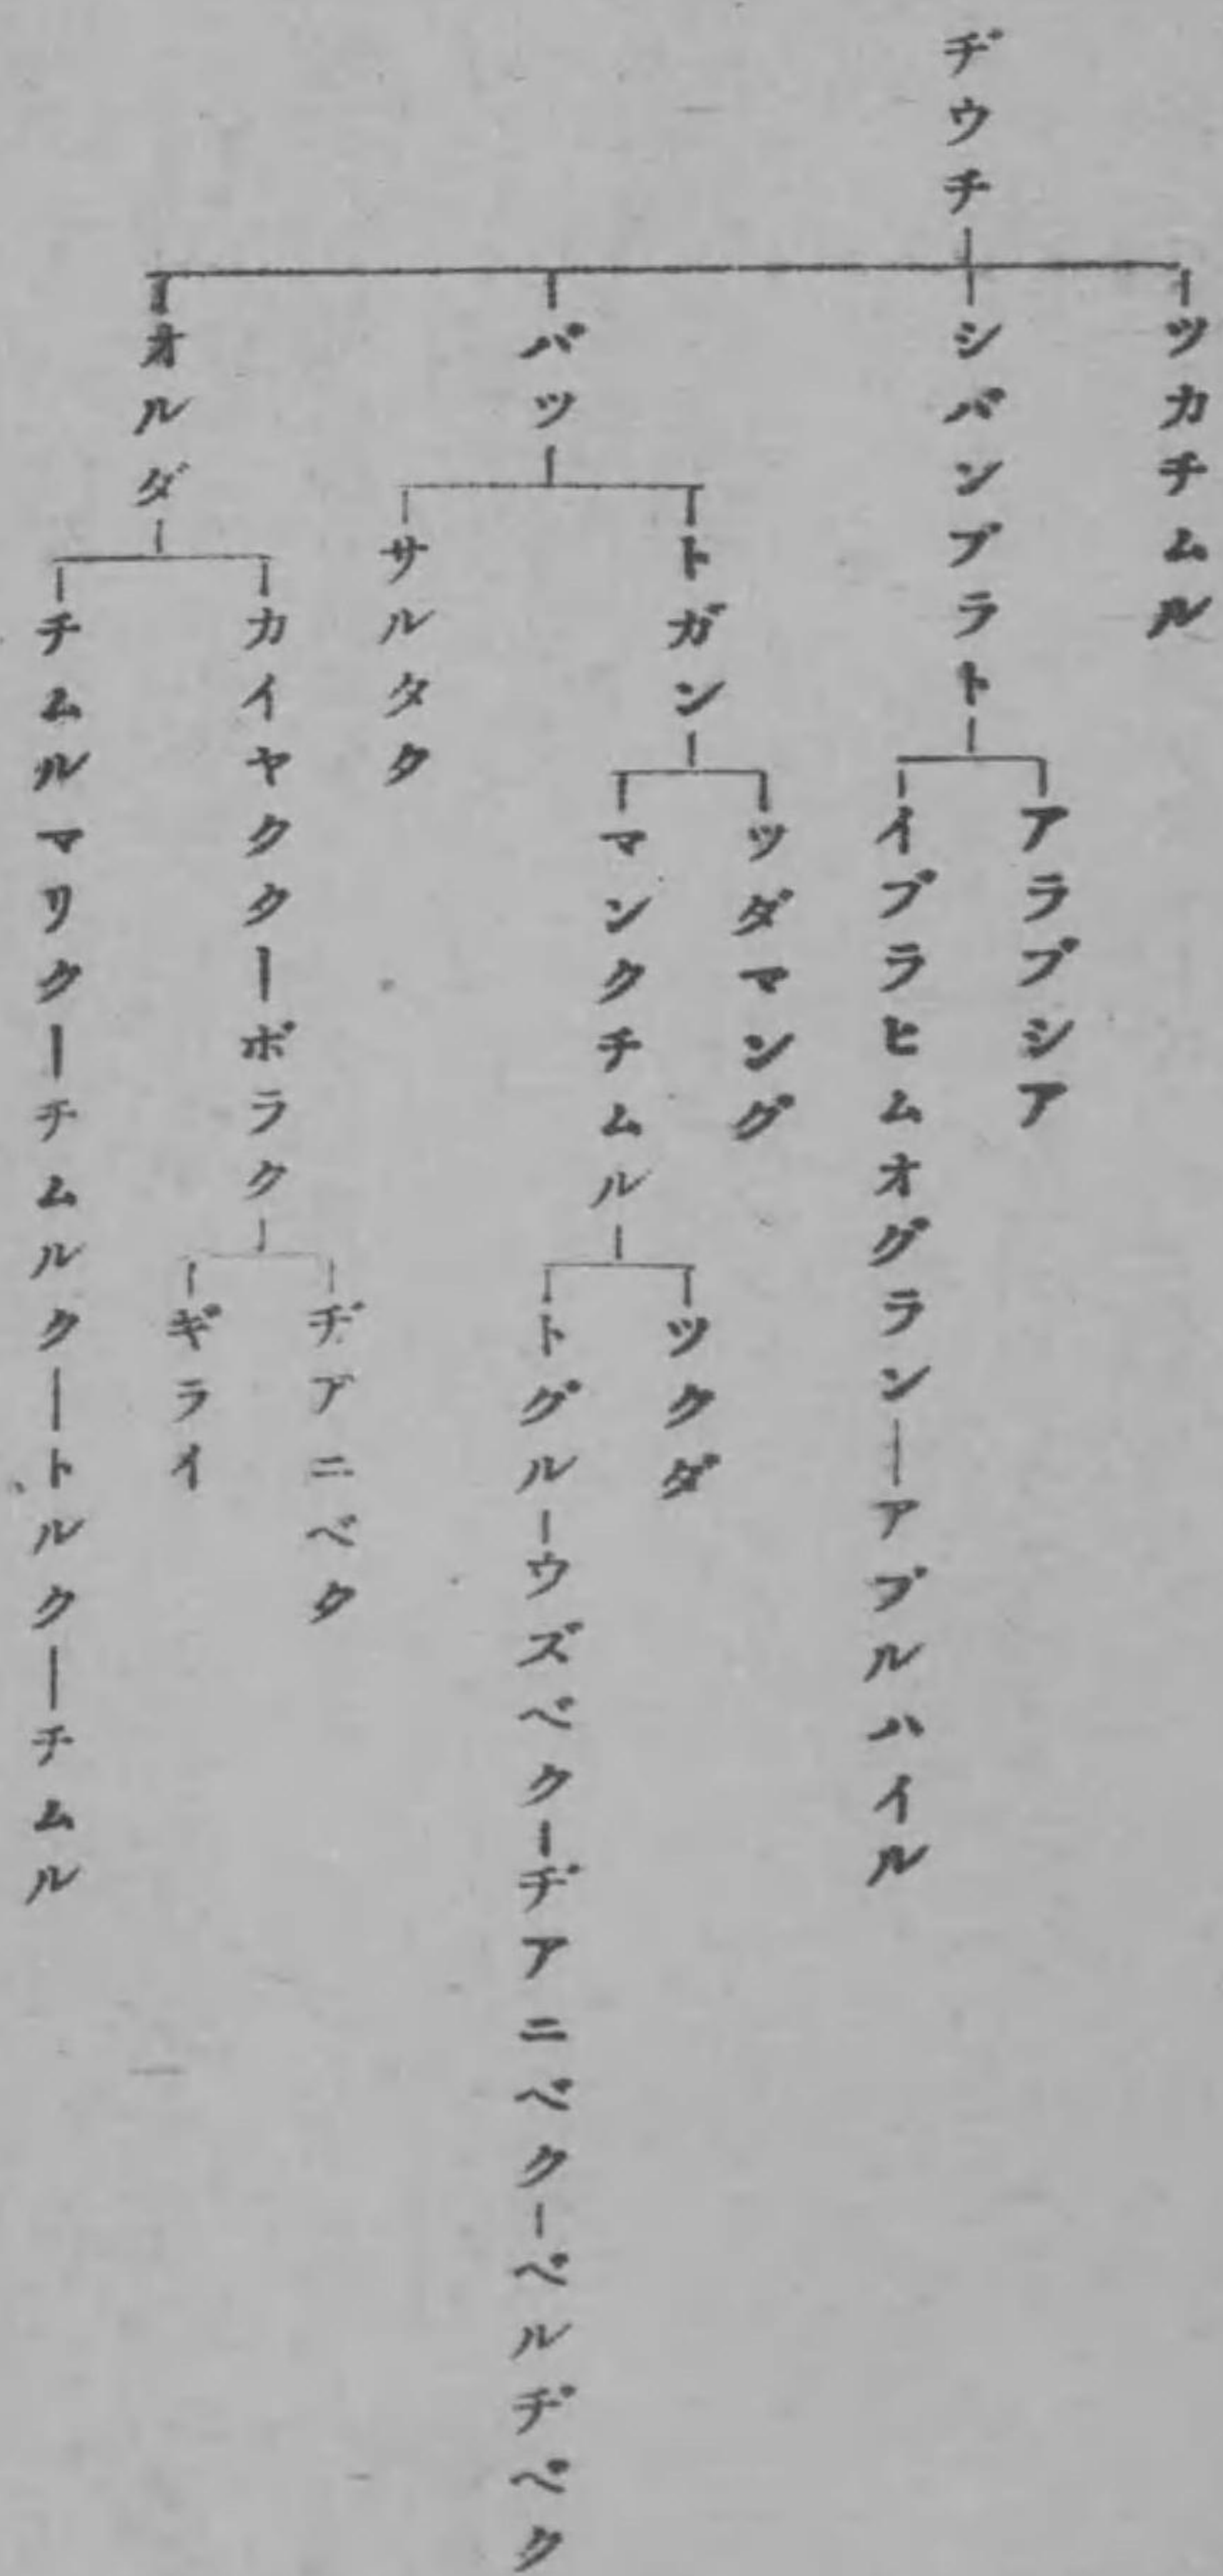 ヂウチ
ツカチムル
シバンブラト
アラブシア
イブラヒムオグラン―アブルハイル
バツ
トガン
ツダマング
マンクチムル
ツクダ
トグル―ウズベク―ヂアニベク―ベルヂベク
サルタク
オルダ
カイヤクク―ボラク
ヂアニベク
ギライ
チムルマリク―チムルク―トルク―チムル